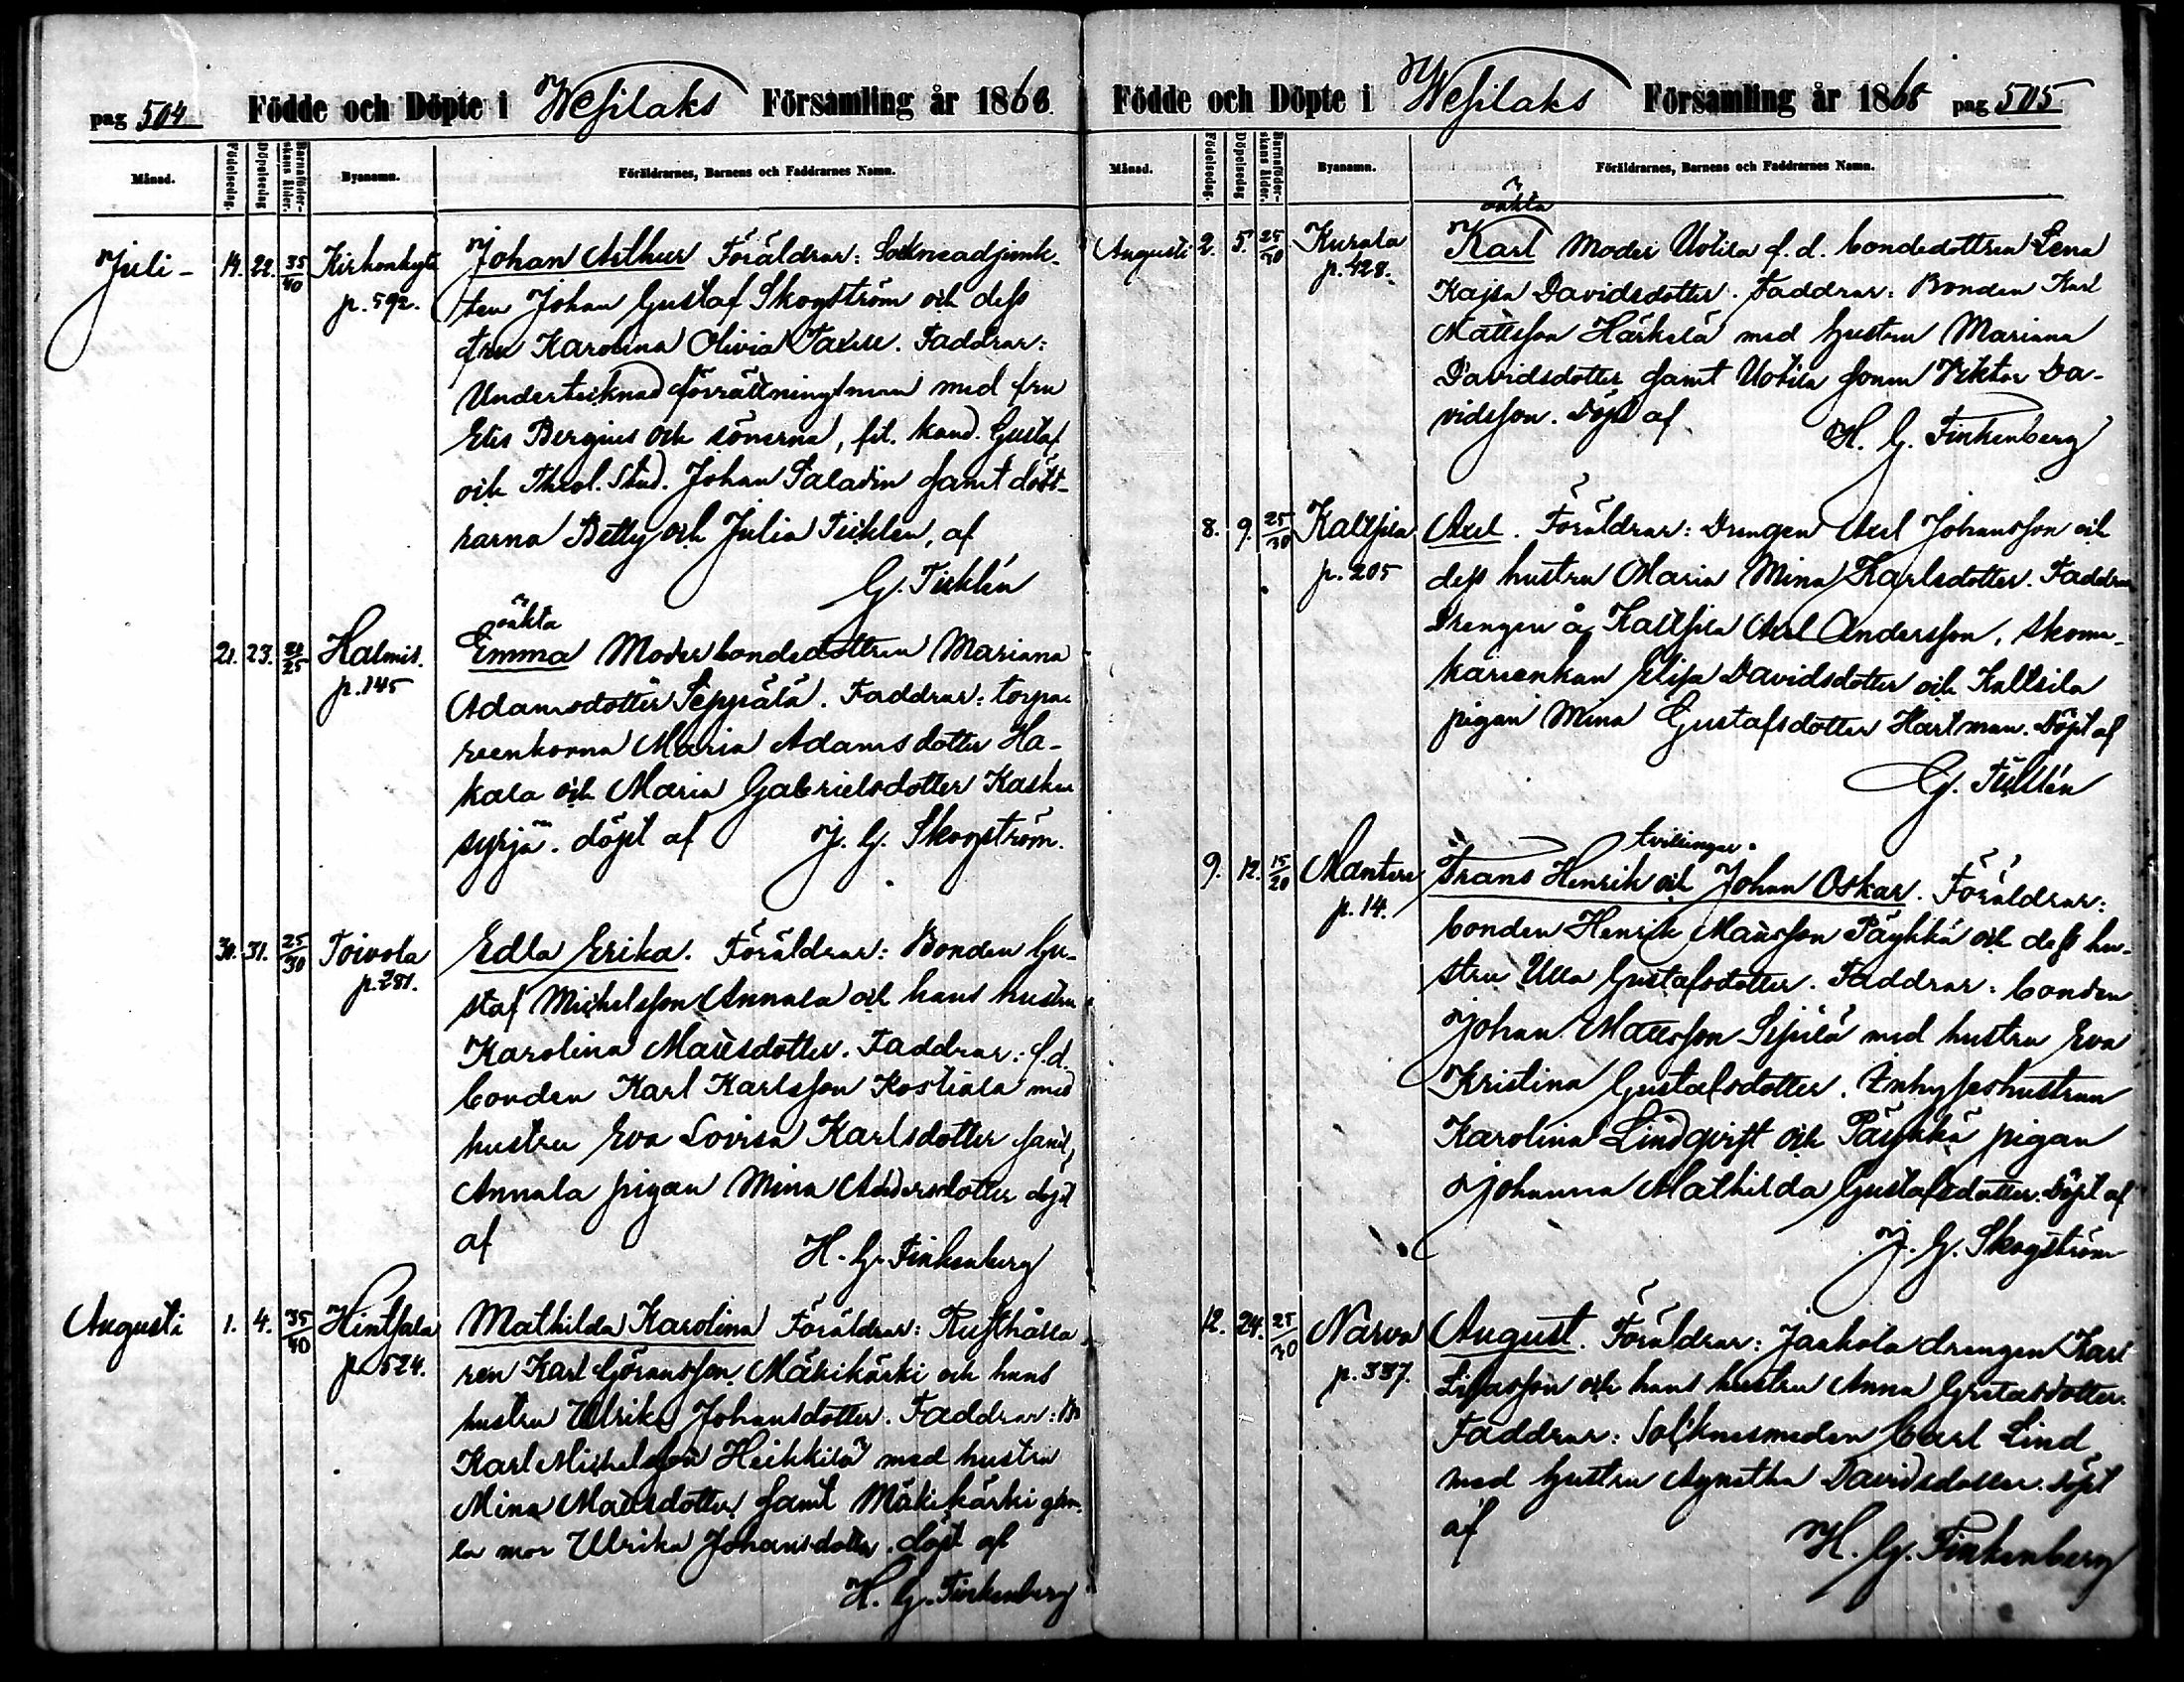 pag 504 Födde och Döpte i Wesilaks Församling år 1866.
Månad. Födelsedag. Döpelsedag Barnaföderskans ålder. Byanamn. Föräldrarnes, Barnens och Faddrarnes Namn.
Juli - 14. 22. 35/40 Kirkonkylä p. 592. Johan Arthur Föräldrar: Sockneadjunk-
ten Johan Gustaf Skogström och dess
fru Karolina Olivia. Faddrar:
Undertecknad förrättningsman med fru
Elis Bergius och sönerna, fil. kand. Gustaf
och Theol. Stud. Johan Paladin samt dött-
rarna Betty och Julia Ticklén, af
G. Ticklén
21. 23. 20/25 Halmis. p. 145 oäkta
Emma Moder bondedottren Mariana
Adamsdotter Seppälä. Faddrar: torpa-
reenkorna Maria Adamsdotter Ha-
kala och Maria Gabrielsdotter Kasken
syrjä. döpt af J. G. Skogström.
30. 31. 25/30 Toivola p. 281. Edla Erika. Föräldrar: Bonden Gu-
staf Michelsson Annala och hans hustru
Karolina Mattsdotter. Faddrar: f.d.
bonden Karl Karlsson Kostiala med
hustru Eva Lovisa Karlsdotter samt,
Annala pigan Mina Andersdotter döpt
af H. G. Finkenberg
Augusti 1. 4. 35/40 Hintsala p. 524. Mathilda Karolina Föräldrar: Rusthålla
ren Karl Göransson Mäkikärki och hans
hustru Ulrika Johansdotter. Faddrar: Bn
Karl Michelsson Heikkilä med hustru
Mina Mattsdotter samt Mäkikärki gam-
la mor Ulrika Johansdotter. döpt af
H. G. Finkenberg
Födde och Döpte i Wesilaks Församling år 1868 pag 505
Månad. Födelsedag. Döpelsedag Barnaföderskans ålder. Byanamn. Föräldrarnes, Barnens och Faddrarnes Namn.
Augusti 2. 5. 25/30 Kurala p. 428. oäkta
Karl Moder Uotila f.d. bondedottren Lena
Kajsa Davidsdotter. Faddrar: Bonden Karl
Mattsson Härkälä med hustru Mariana
Davidsdotter samt Uotila sonen Viktor Da-
vidsson. Döpt af H. G. Finkenberg
8. 9. 25/30 Kaltsila p. 205 Axel. Föräldrar: Drengen Axel Johansson och
dess hustru Maria Mina Karlsdotter. Faddrar
Drengen å Kaltsila Axel Andersson, skoma-
kareenkan Elisa Davidsdotter och Kaltsila
pigan Mina Gustafsdotter Hartman. Döpt af
G. Ticklén
9. 12. 15/20 Mantere p. 14. tvillingar.
Frans Henrik och Johan Oskar. Föräldrar:
bonden Henrik Mattsson Päykkä och dess hu-
stru Ulla Gustafsdotter. Faddrar: bonden
Johan Mattsson Sipilä med hustru Eva
Kristina Gustafsdotter. Inhyseshustrun
Karolina Lindqvist och Päykkä pigan
Johanna Mathilda Gustafsdotter. Döpt af
J. G. Skogström
12. 24. 25/30 Narva p. 337. August. Föräldrar: Jaakola drengen Karl
och hans hustru Anna Gustafsdotter.
Faddrar: Socknesmeden Carl Lind
med hustru Agnetha Davidsdotter. Döpt
af H. G. Finkenberg